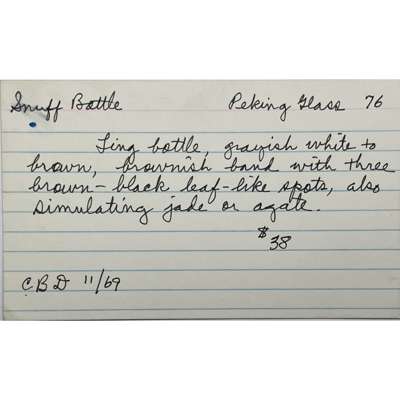 Snuff Bottle Peking Glass 76
Ting bottle, grayish white to
brown, brownish band with three
brown-black leaf-like spots, also
simulating jade or agate.
$38
CBD 11/69